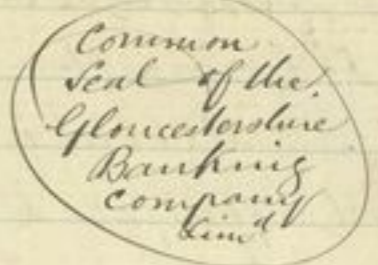 Common
Seal of the
Gloucestershire
Banking
Company
Limd